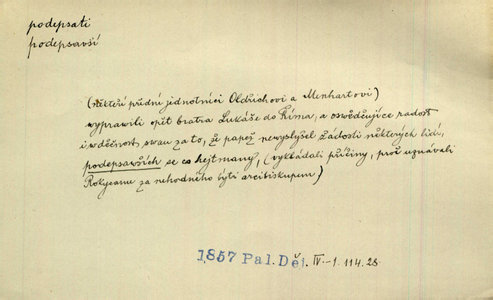 podepsati
podepsavší
(někteří přední jednotníci Oldřichovi a Menhartovi)
vypravili opět bratra Lukáše do Říma, a osvědčujíce radost
i vděčnost svau za to, že papež nevyslyšel žádosti některých lidí,
podepsavších se co hejtmany, (vykládali příčiny, proč uznávali
Rokycanu za nehodného býti arcibiskupem)
1857 Pal. Děj. IV.-1. 114.28